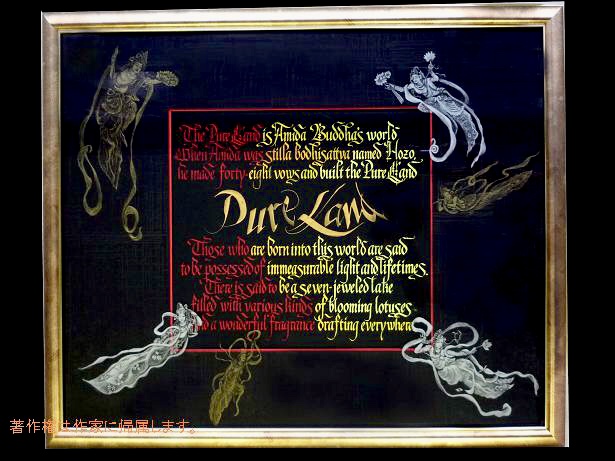 The Pure Land is Amida Buddha's world
When Amida was still a bodhisattva named Hozo,
he made forty-eight vows and built the Pure Land
Pure Land
Those who are born into this world are said
to be possessed of immeasurable light and lifetimes.
There is said to be a seven-jeweled lake
filled with various kinds of blooming lotuses
and a wonderful fragrance drafting everywhere
著作権は作家に帰属します。